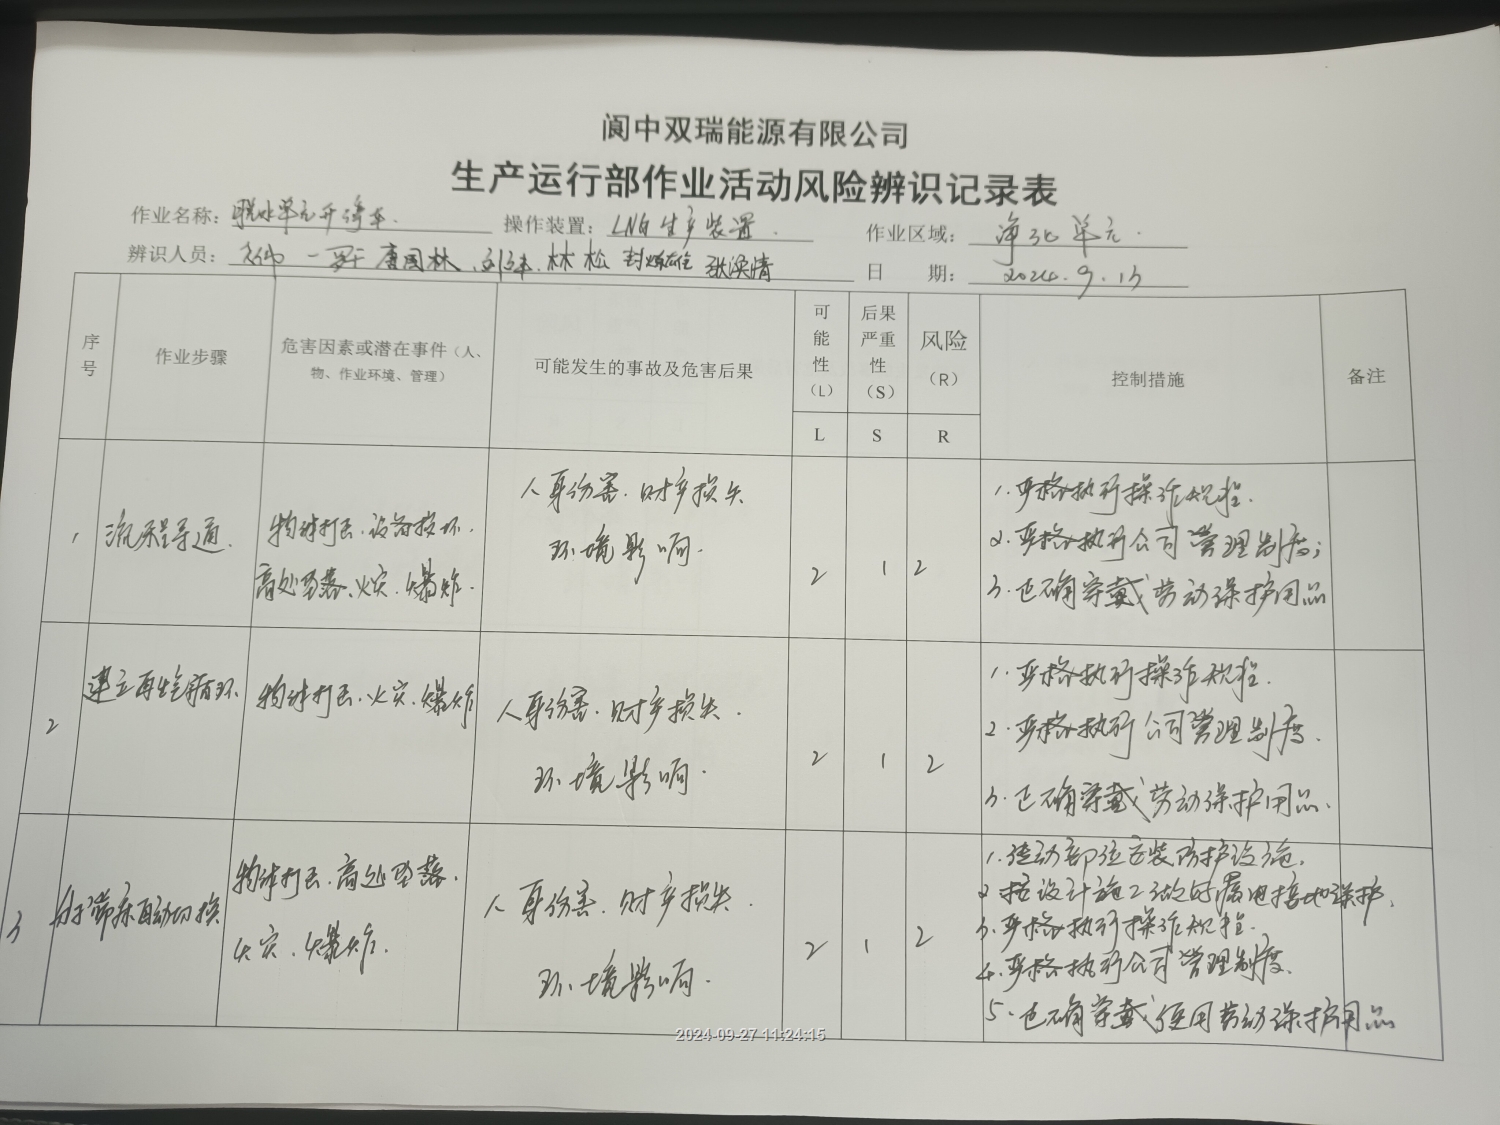 阆中双瑞能源有限公司
生产运行部作业活动风险辨识记录表
作业名称：脱水单元开停车. 操作装置：LNG生产装置. 作业区域：净化单元.
辨识人员：唐国林、林松 日 期：2024.9.13
序号 作业步骤 危害因素或潜在事件（人、物、作业环境、管理） 可能发生的事故及危害后果 可能性（L） 后果严重性（S） 风险（R） 控制措施 备注
L S R
1 流程导通. 物体打击.设备损坏.
高处坠落、火灾.爆炸.
人身伤害.财产损失
环境影响.
2 1 2
1.严格执行操作规程.
2.严格执行公司管理制度；
3.正确穿戴劳动保护用品
2 建立再生气循环 物体打击.火灾.爆炸
人身伤害.财产损失.
环境影响.
2 1 2
1.严格执行操作规程.
2.严格执行公司管理制度.
3.正确穿戴劳动保护用品.
3 分子筛床自动切换 物体打击.高处坠落.
火灾.爆炸.
人身伤害.财产损失.
环境影响.
2 1 2
1.传动部位安装防护设施.
2.按设计施工做好漏电接地保护.
3.严格执行操作规程.
4.严格执行公司管理制度.
5.正确穿戴使用劳动保护用品
2024-09-27 11:24:15